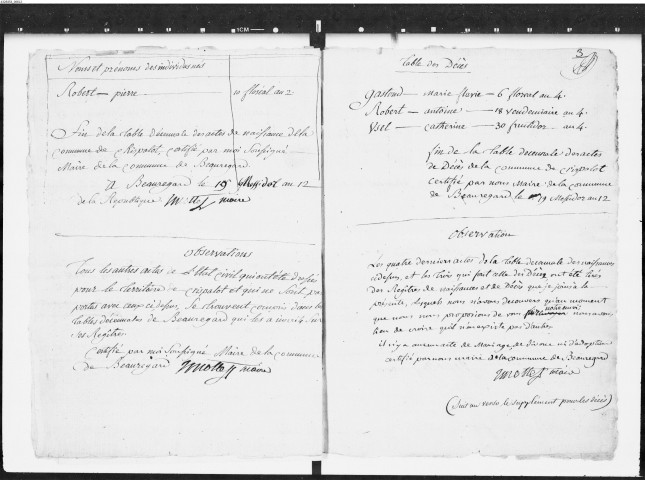 Noms et prénoms des individus nés
Robert — pierre 11 floréal an 2
Fin de la table décennale des actes de naissance de la
commune de Crépalot, certifié par moi Soussigné
Maire de la commune de Beauregard.
A Beauregard le 19 Messidor an 12
de la République Motte maire
Observations
Tous les autres actes de l'Etat Civil qui ont été dressés
pour le territoire de Crépalot et qui ne sont pas
portés avec ceux ci dessus, se trouvent compris dans les
tables décennales de Beauregard qui les a inscrits sur
ses Registres
Certifié par moi Soussigné Maire de la commune
de Beauregard Motte maire
3
Table des Décès
marie fluvie — 6 floreal an 4.
Robert — antoine — 18 vendemiaire an 4.
catherine — 30 fructidor an 4.
fin de la table decennale des actes
de Décès de la commune de Crepalot
certifié par nous Maire de la commune
de Beauregard le 19 Messidor an 12
Observation
Les quatre derniers actes de la table decennale des naissances
cidessus, et les trois qui font celle du Décès ont été tirés
des Registres de naissances et de Décès que je joins à la
présente, lesquels nous n'avons decouvers qu'au moment
que nous nous proposions de vous
lieu de croire qu'il n'en existe pas d'autres.
il n'y a aucun acte de Mariage, de divorce ni d'adoption
certifié par nous maire de la commune de Beauregard
Motte maire
(Suit au verso, le supplement pour les décès)